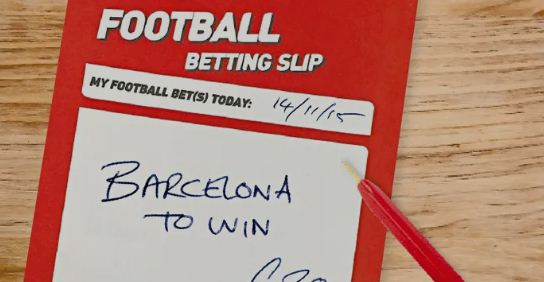 FOOTBALL
BETTING SLIP
MY FOOTBALL BET(S) TODAY: 14/11/15
BARCELONA
TO WIN